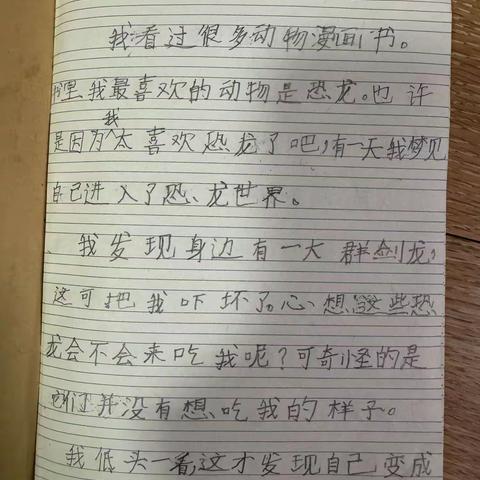 我看过很多动物漫画书。
书里,我最喜欢的动物是恐龙。也许
是因为我太喜欢恐龙了吧,有一天我梦见
自己进入了恐龙世界。
我发现身边有一大群剑龙,
这可把我吓坏了。心想,这些恐
龙会不会来吃我呢?可奇怪的是
它们并没有想吃我的样子。
我低头一看,这才发现自己变成